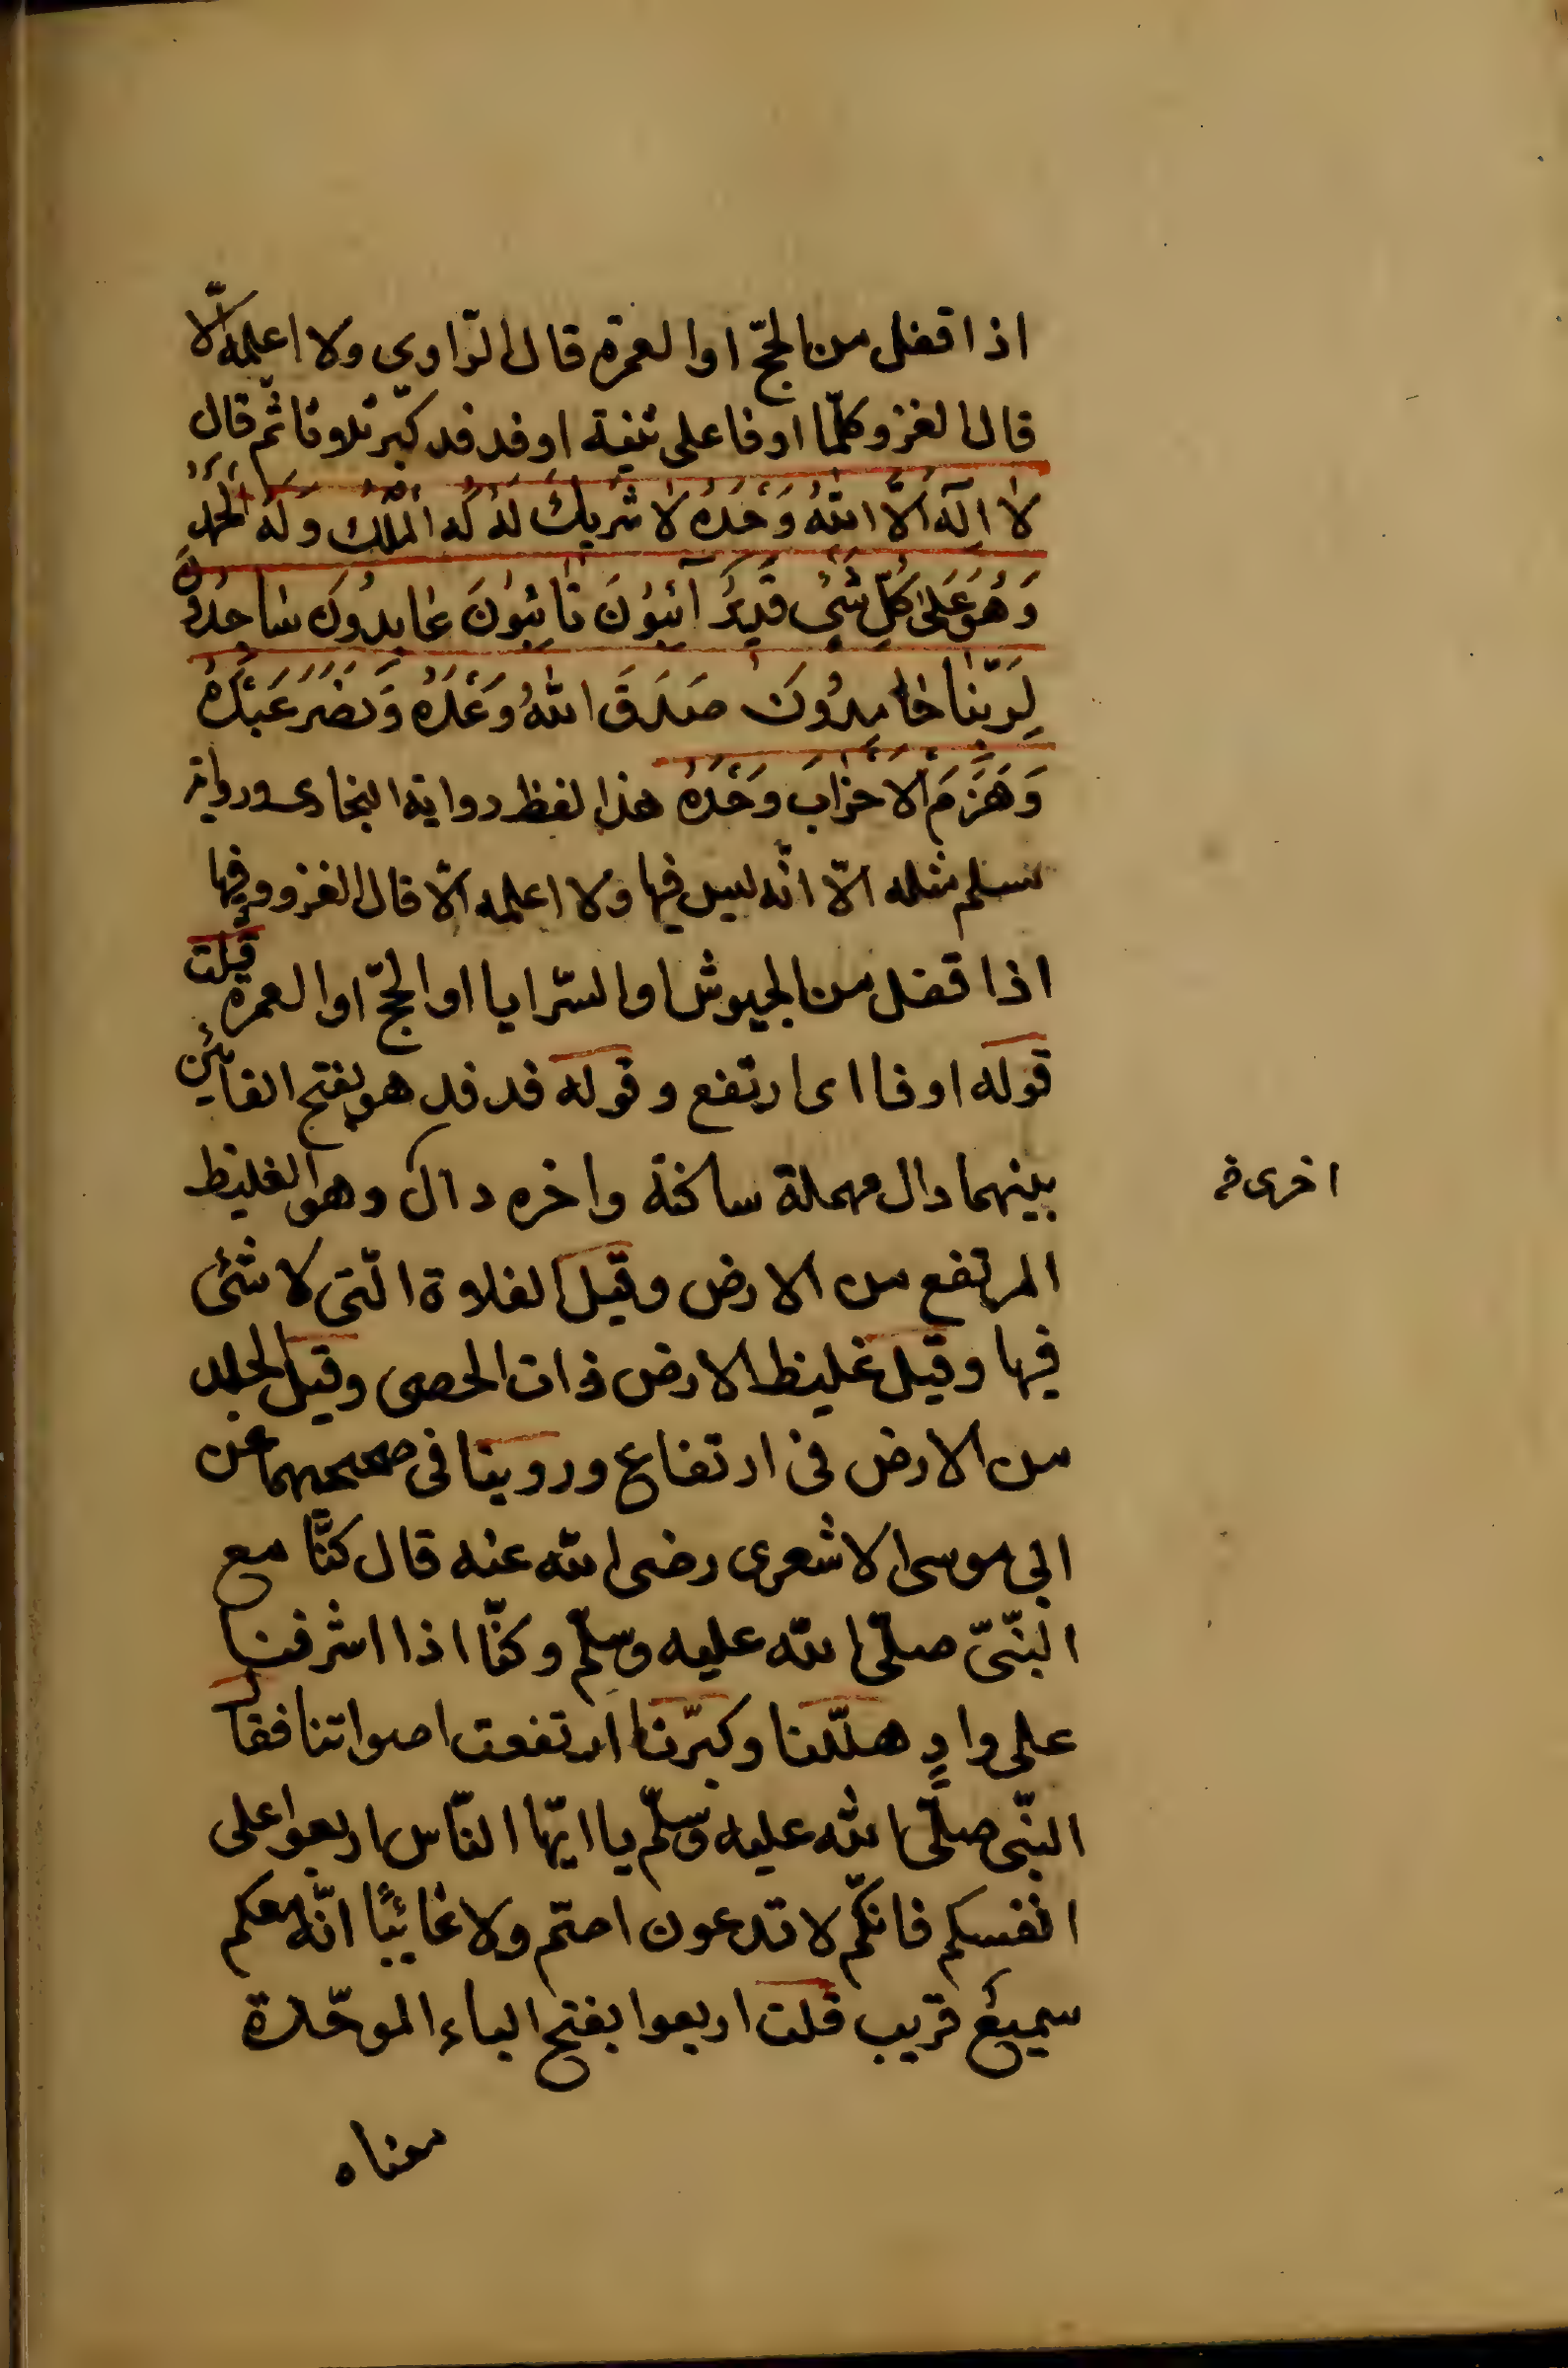 اذا قفل من الحجّ او العمرة قال الرّاوى ولا اعلمه الّا
قال الغزو كلّما اوفا على ثنية او فدفد كبّر ثلاثا ثم قال
لا اِلٓهَ اِلَّا اللهُ وَحْدَهُ لَا شَرِيكَ لَهُ لَهُ الْمُلْكُ وَلَهُ الْحَمْدُ
وَهُوَ عَلىٰ كُلِّ شَيْءٍ قَدِيرٌ آئِبُونَ تَائِبُونَ عَابِدُونَ سَاجِدُونَ
لِرَبِّنَا حَامِدُونَ صَدَقَ اللهُ وَعْدَهُ وَنَصَرَ عَبْدَهُ
وَهَزَمَ الْاَحْزَابَ وَحْدَهُ هذا لفظ رواية البخارى ورواية
مسلم مثله الّا انّه ليس فيها ولا اعلمه الّا قال الغزو وفيها
اذا قفل من الجيوش او السّرايا او الحجّ او العمرة قلت
قوله اوفا اى ارتفع و قوله فدفد هو بفتح الفائين
بينهما دال مهملة ساكنة واخره دال وهو الغليظ
اخرى
المرتفع من الارض وقيل الفلاة الّتى لا شئى
فيها وقيل غليظ الارض ذات الحصى وقيل الجلد
من الارض فى ارتفاع وروينا فى صحيحيهما عن
ابى موسى الاشعرى رضى الله عنه قال كنّا مع
النبّىّ صلّى الله عليه وسلّم وكنّا اذا اشرفنا
على وادٍ هلّلنا وكبّرنا ارتفعت اصواتنا فقال
النبّى صلّى الله عليه وسلّم يا ايّها النّاس اربعوا على
انفسكم فانكّم لا تدعون اصمّ ولا غائبًا انّه معكم
سميعٌ قريب قلت اربعوا بفتح الباء الموحّدة
معناه